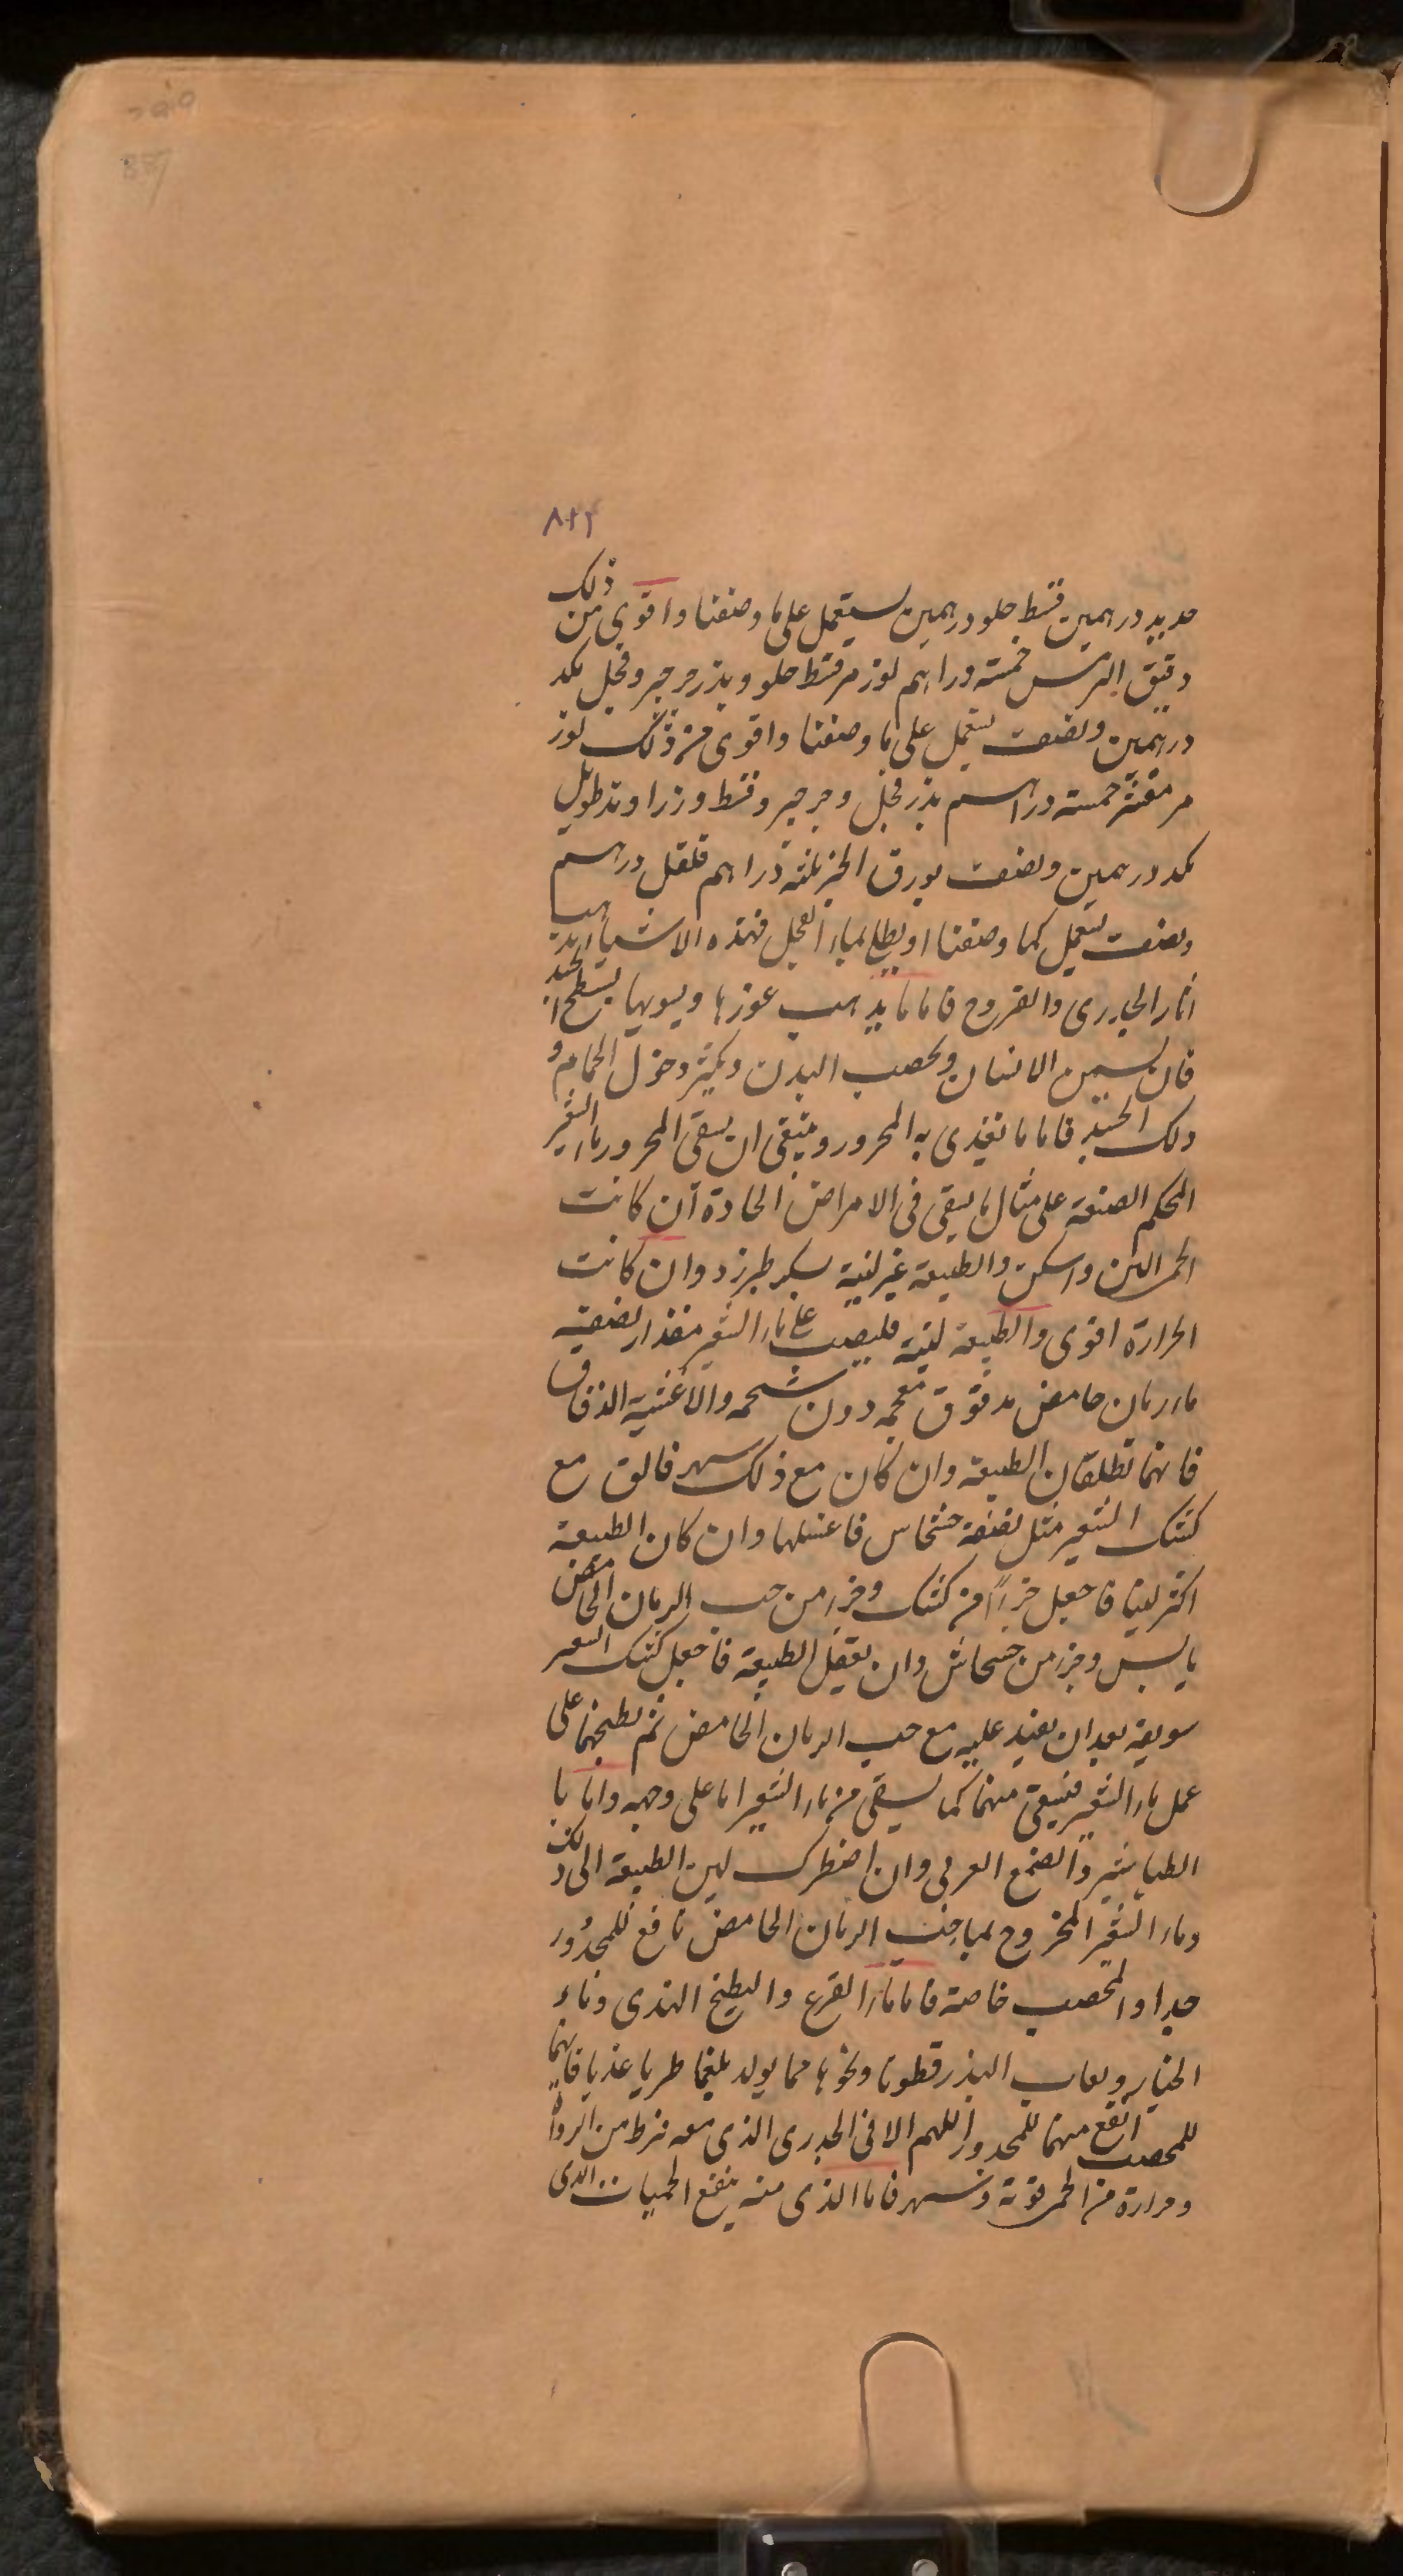 ٨٢٢
حديد درهمين قسط حلو درهمين يستعمل على ما وصفنا واقوى من ذلك
دقيق الترمس خمسة دراهم لوز مر قسط حلو وبزر جرجير وفجل مكد
درهمين ونصف يستعمل على ما وصفنا واقوى من ذلك لوز
مر مقشر خمسة دراهم بزر فجل وجرجير وقسط وزراوند طويل
مكد درهمين ونصف بورق الخبز ثلثة دراهم فلفل درهم
ونصف يستعمل كما وصفنا او يطلى بماء الفجل فهذه الاشياء يذهب
اثار الجدرى والقروح فاما ما يذهب غورها ويسويها بسطح الجسد
فان يسمن الانسان ويخصب البدن ويكثر دخول الحمام و
دلك الجسد فاما ما تغذى به المحرور وينبغى ان يسقى المحرور ماء الشعير
المحكم الصنعة على مثال ما يسقى فى الامراض الحادة ان كانت
الحمى الين واسكن والطبيعة غير لينة بسكر طبرزد وان كانت
الحرارة اقوى والطبيعة لينة فليصب على ماء الشعير مقدار نصفه
ماء رمان حامض مدقوق بعجمه دون شحمه والاغشية الدقاق
فانهما تطلقان الطبيعة وان كان مع ذلك سهر فالق مع
كشك الشعير مثل نصفه خشخاس فاغسلها وان كان الطبيعة
اكثر لينا فاجعل جزءاً من كشك وجزء من حب الرمان الحامض
يابس وجزء من خسخاش وان يعقل الطبيعة فاجعل كشك الشعير
سويقه بعد ان يعيد عليه مع حب الرمان الحامض ثم يطبخهما على
عمل ماء الشعير فيسقى منهما كما يسقى من ماء الشعير اما على وجهه واما با
الطباشير والصمغ العربى وان اضطرك لين الطبيعة الى ذلك
وماء الشعير المخروج بماء حب الرمان الحامض نافع للمجدور
جدا والمحصب خاصة فاما ماء القرع والبطيخ الهندى وماء
الخيار ولعاب البذر قطونا ونحوها مما يولد بلغما طريا عذيا فانهما
للمحصب انفع منهما للمجدور اللهم الا فى الجدرى الذى معه فرط من
وحرارة من الحمى قوية وسهر فاما الذى منه ينفع الحميات الذى